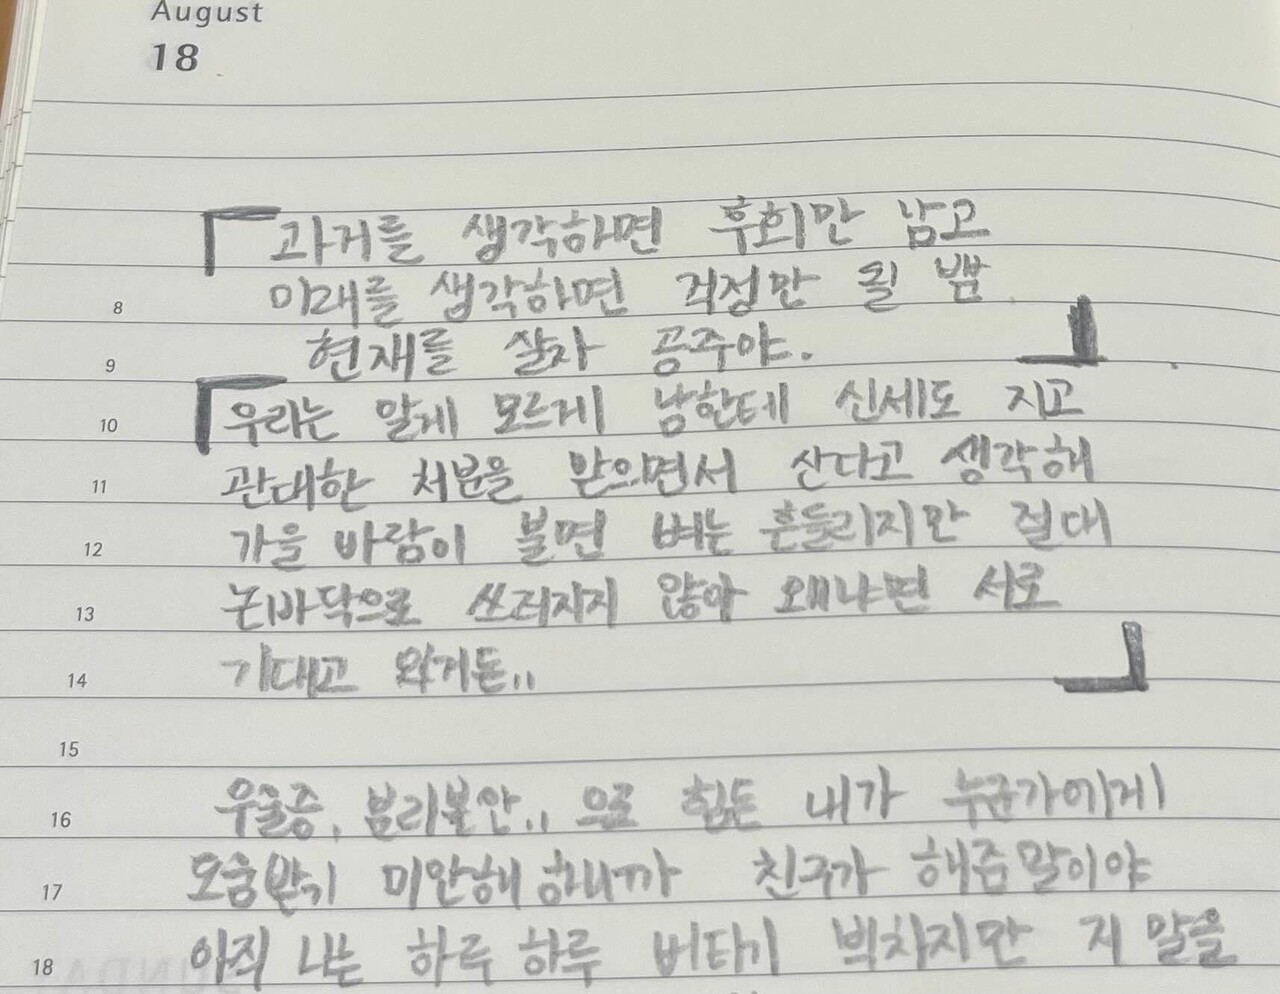 August
18
「과거를 생각하면 후회만 남고
8 미래를 생각하면 걱정만 될 뿐
9 현재를 살자 공주야.」
10 「우리는 알게 모르게 남한테 신세도 지고
11 관대한 처분을 받으면서 산다고 생각해
12 가을 바람이 불면 벼는 흔들리지만 절대
13 논바닥으로 쓰러지지 않아 왜냐면 서로
14 기대고 있거든..」
15
16 우울증, 분리불안.. 으로 힘든 내가 누군가에게
17 도움받기 미안해 하니까 친구가 해준말이야
18 아직 나는 하루 하루 버티기 벅차지만 저 말을